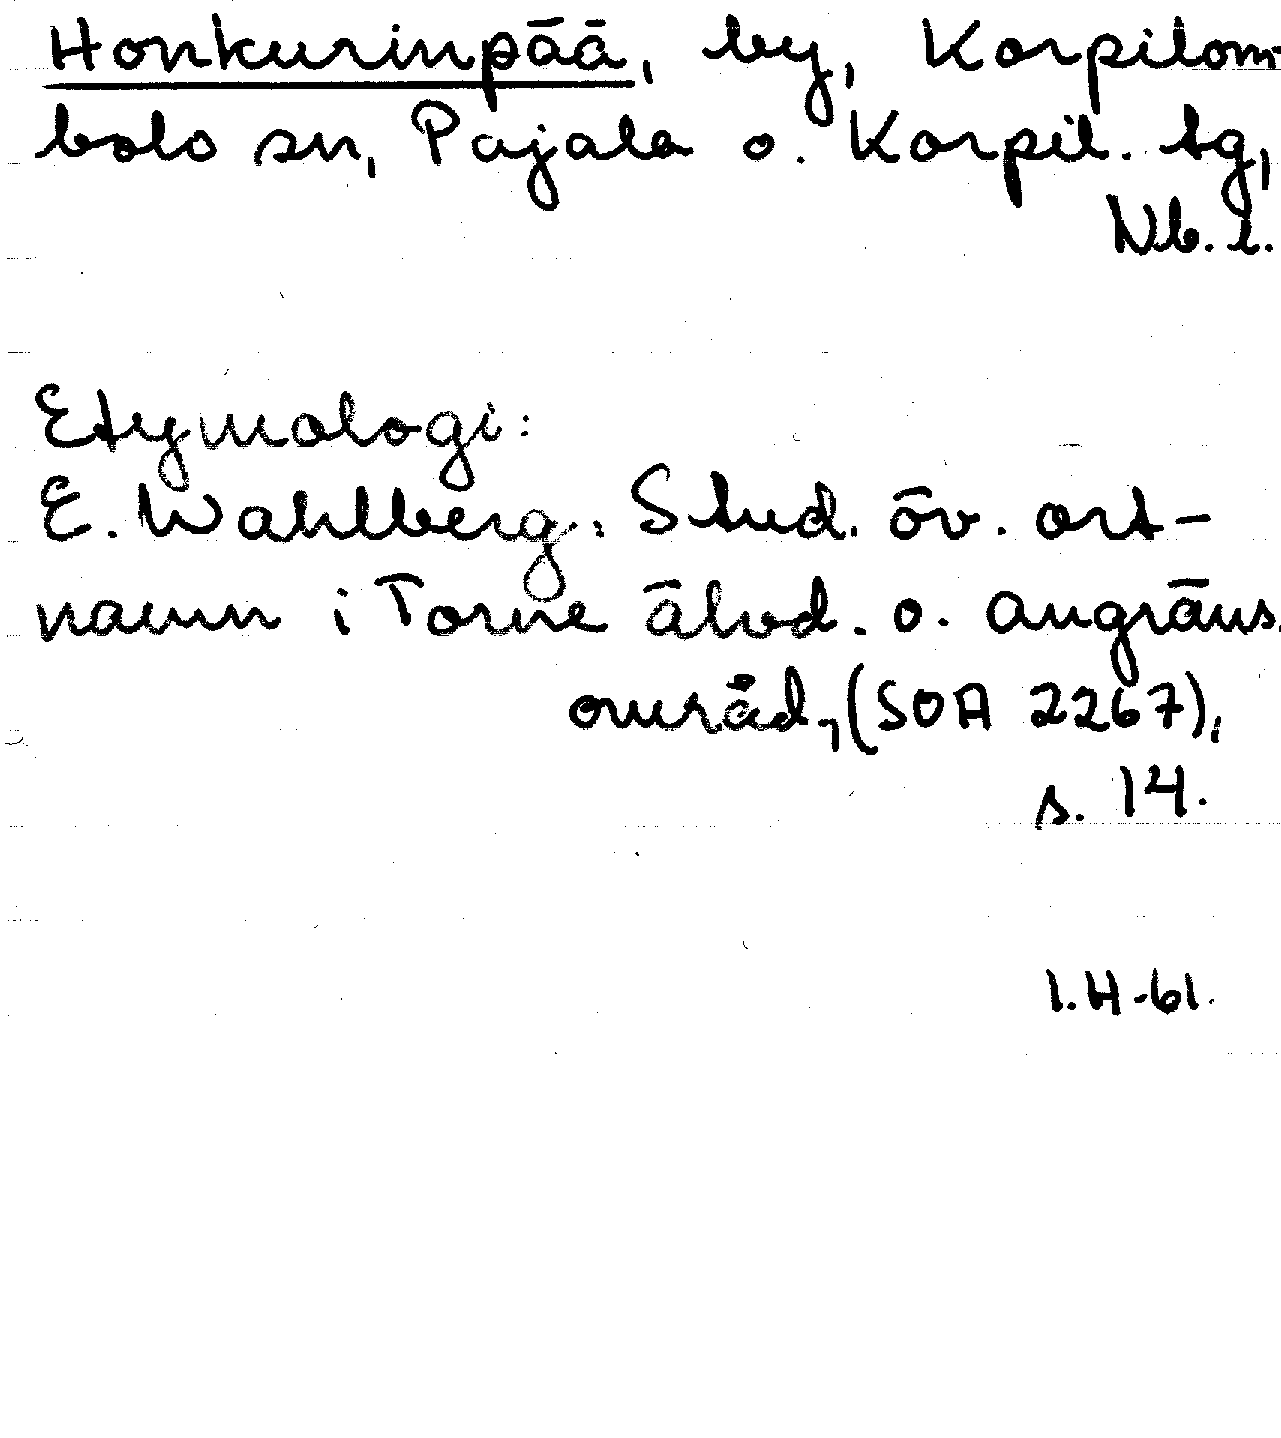 Honkurinpää, by, Korpilom-
bolo sn, Pajala o. Korpil. tg,
Nb. l.
Etymologi:
E. Wahlberg: Stud. öv. ort-
namn i Torne älvd. o. angräns.
område, (SOA 2267),
s. 14.
I.H-61.